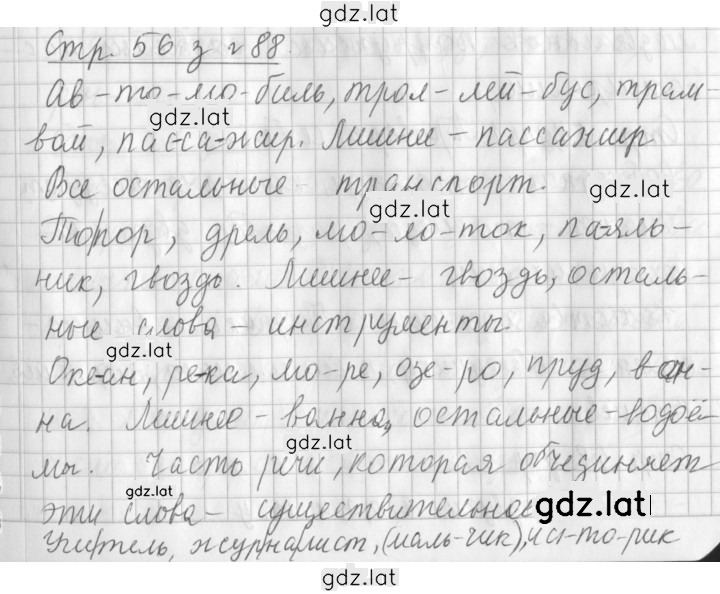 gdz.lat
Стр. 56 з г 88.
Ав-то-мо-биль, трол-лей-бус, трам-
gdz.lat
вай, пас-са-жир. Лишнее - пассажир
Все остальные - транспорт.
gdz.lat
gdz.lat
Топор, дрель, мо-ло-ток, па-яль-
ник, гвоздь. Лишнее - гвоздь, осталь-
ные слова - инструменты.
gdz.lat
Оке-ан, ре-ка, мо-ре, озе-ро, пруд, ван-
на. Лишнее - ванна, остальные - водоё-
gdz.lat
мы. Часть речи, которая объединяет
gdz.lat
эти слова - существительное
gdz.lat
Учитель, журналист, (маль-чик), ис-то-рик
gdz.lat